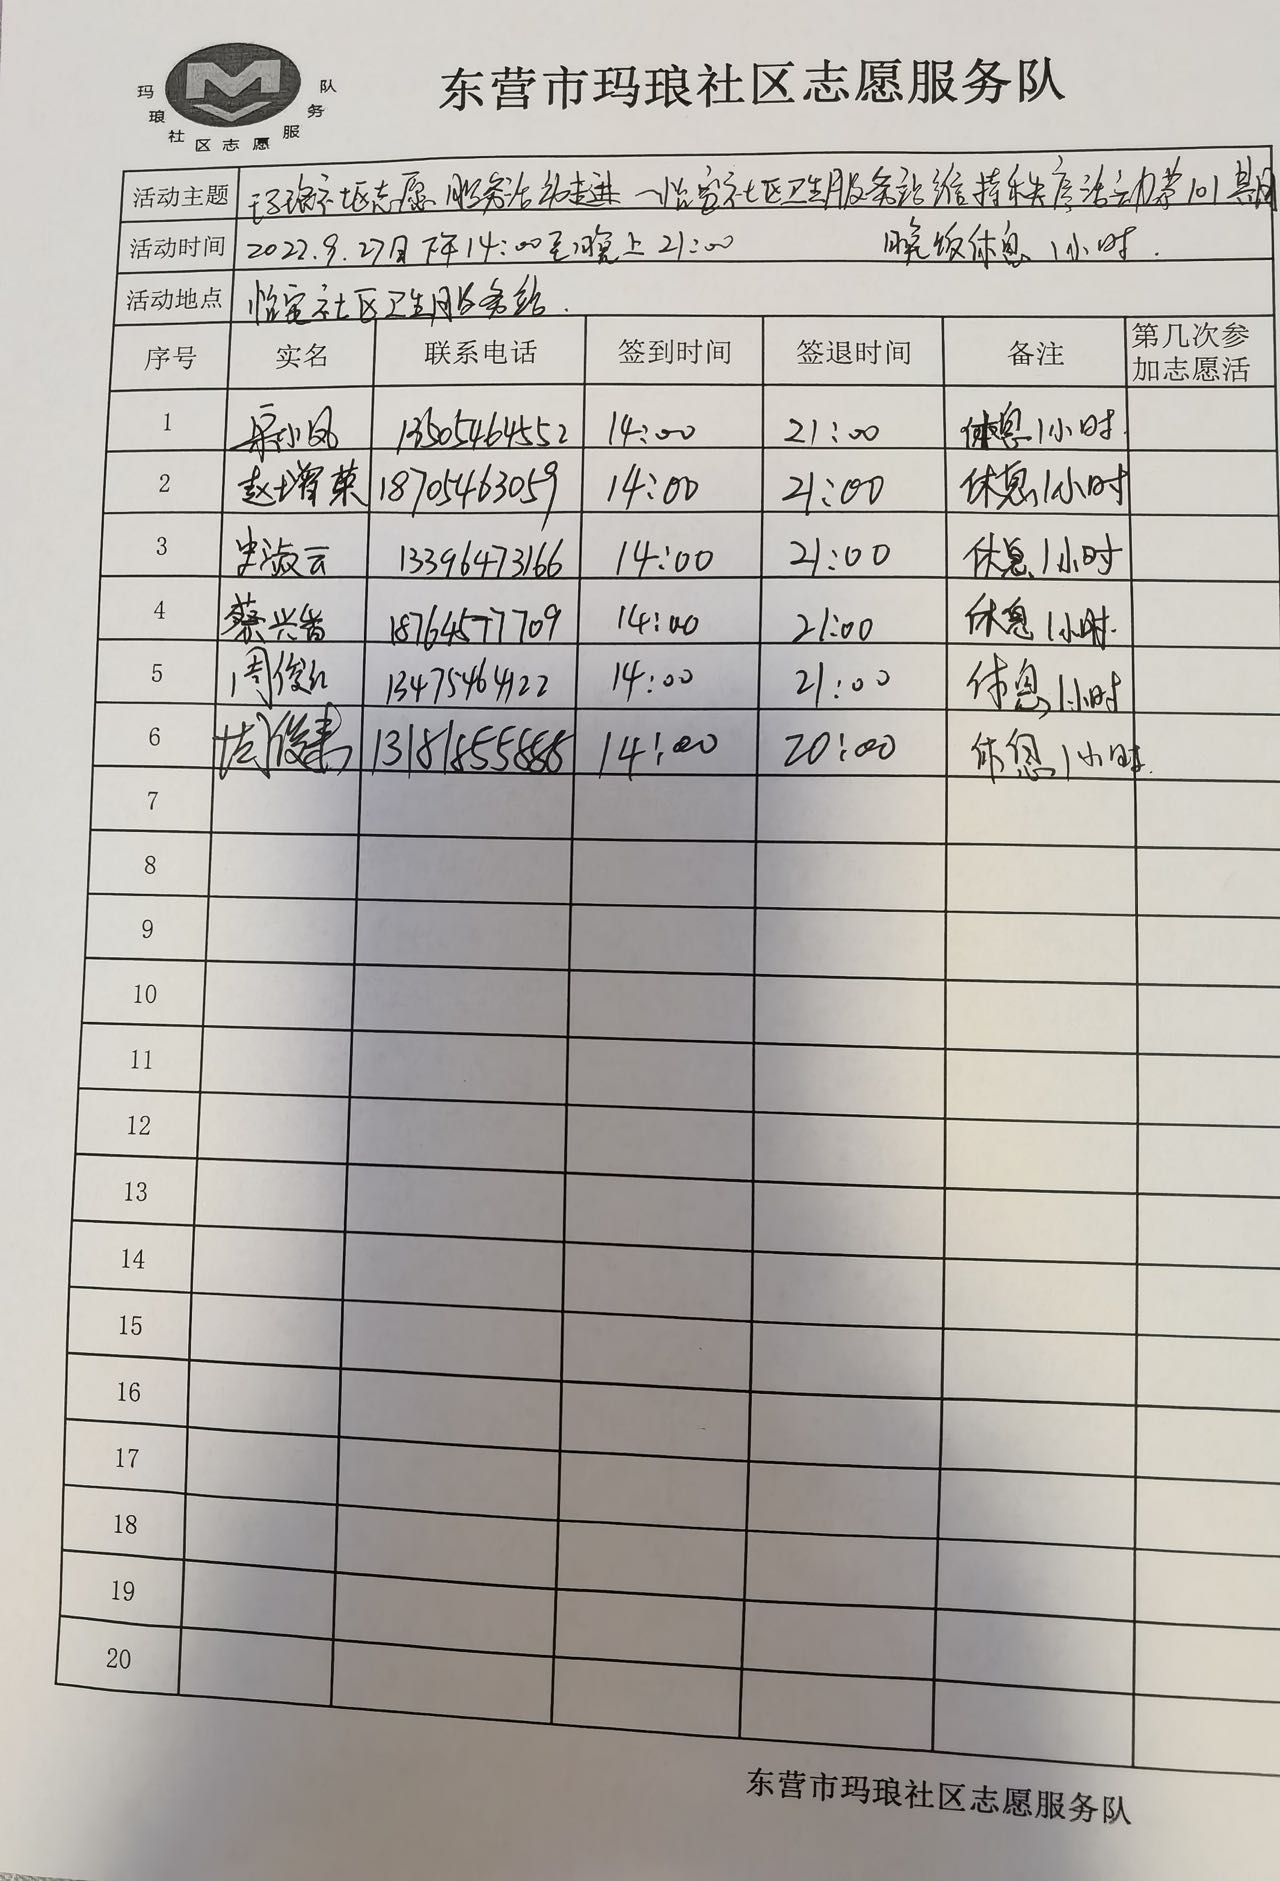 玛琅社区志愿服务队
东营市玛琅社区志愿服务队
活动主题 玛琅社区志愿服务活动走进一怡宝社区卫生服务站维持秩序活动第101期
活动时间 2022.9.27日下午14:00至晚上21:00 晚饭休息1小时.
活动地点 怡宝社区卫生服务站.
序号 实名 联系电话 签到时间 签退时间 备注 第几次参
加志愿活
1 小凤 13505464552 14:00 21:00 休息1小时.
2 赵增荣 18705463059 14:00 21:00 休息1小时
3 史淑云 13396473166 14:00 21:00 休息1小时
4 蔡兴 18764577709 14:00 21:00 休息1小时.
5 周俊红 13475464122 14:00 21:00 休息1小时
6 俊 13181855888 14:00 20:00 休息1小时.
7
8
9
10
11
12
13
14
15
16
17
18
19
20
东营市玛琅社区志愿服务队